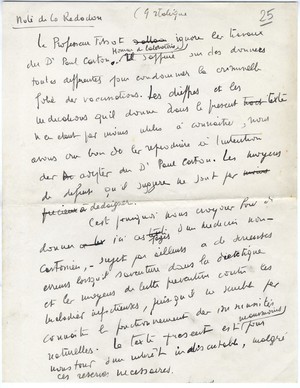 Note de la Rédaction (G. 25
Le Professeur Tissot ignore les travaux
du Dr Paul Carton. Il s'appuie sur des données
toutes différentes pour condamner la criminelle
folie des vaccinations. Les chiffres et les
qu'il donne dans le présent texte
n'en étant pas moins utiles à connaître, nous
avons cru bon de les reproduire à l'intention
des adeptes du Dr Paul Carton. Les moyens
de défense qu'il suggère ne sont pas
à dédaigner.
C'est pourquoi nous croyons bon de
donner ici cette étude d'un médecin non-
cartonien, sujet par ailleurs à de sérieuses
erreurs lorsqu'il s'aventure dans la diététique
et les moyens de lutte préventive contre les
maladies infectieuses, puisqu'il ne semble pas
connaître le fonctionnement des immunités
naturelles. Le texte présent est néanmoins pour
nous tous d'un intérêt indiscutable, malgré
ces réserves nécessaires.